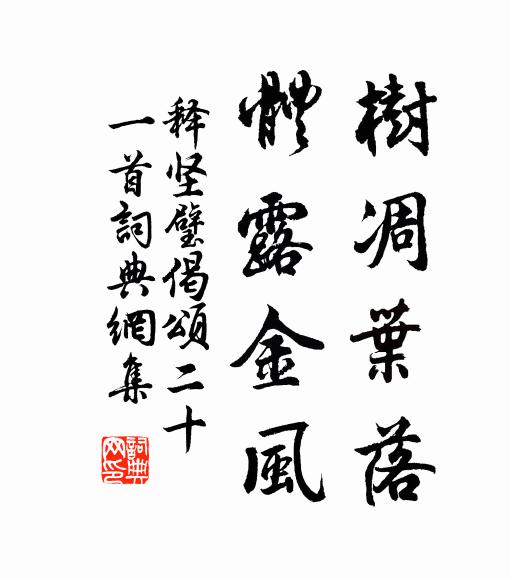 樹凋葉落
體露金風
释坚璧偈頌二十
一首詞典網集
詞典网印